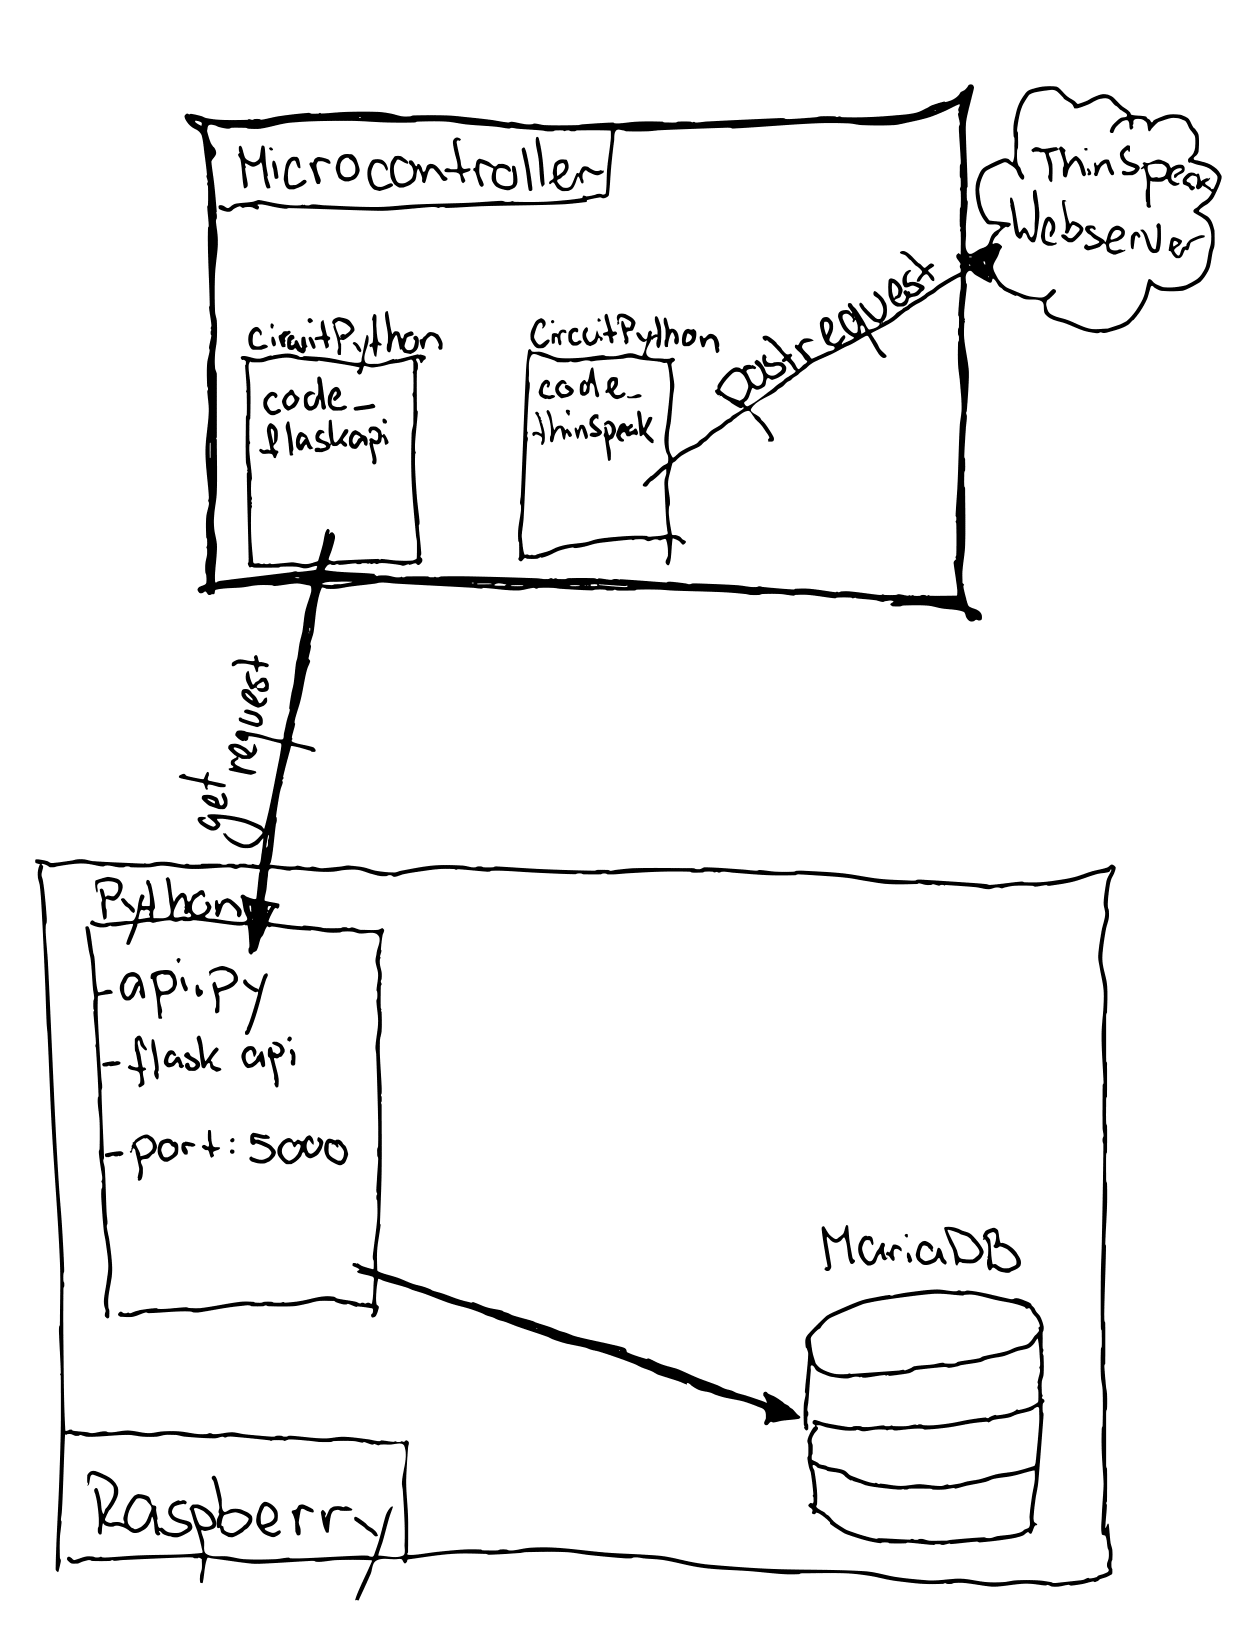 Microcontroller
ThinSpeak
Webserver
CircuitPython
code_
flaskapi
CircuitPython
code_
thinSpeak
Postrequest
get request
Python
- api.py
- flask api
- port: 5000
MariaDB
Raspberry